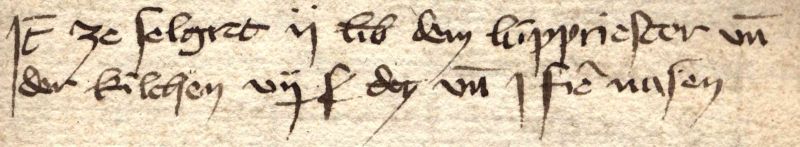 It̄ ze selgret ij lib dem lüppriester vn̄
der kilchen vij ß vn̄ j nasen